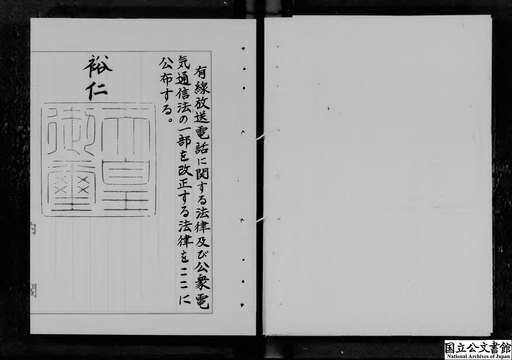 有線放送電話に関する法律及び公衆電
気通信法の一部を改正する法律をここに
公布する。
裕仁
天皇
御璽
内閣
国立公文書館
National Archives of Japan